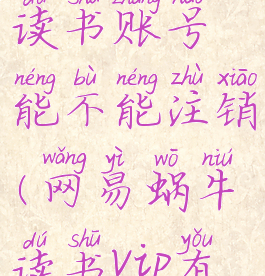 dú shū zhàng hào
读书账号
néng bù néng zhù xiāo
能不能注销
wǎng yì wō niú
(网易蜗牛
dú shū yǒu
读书vip有